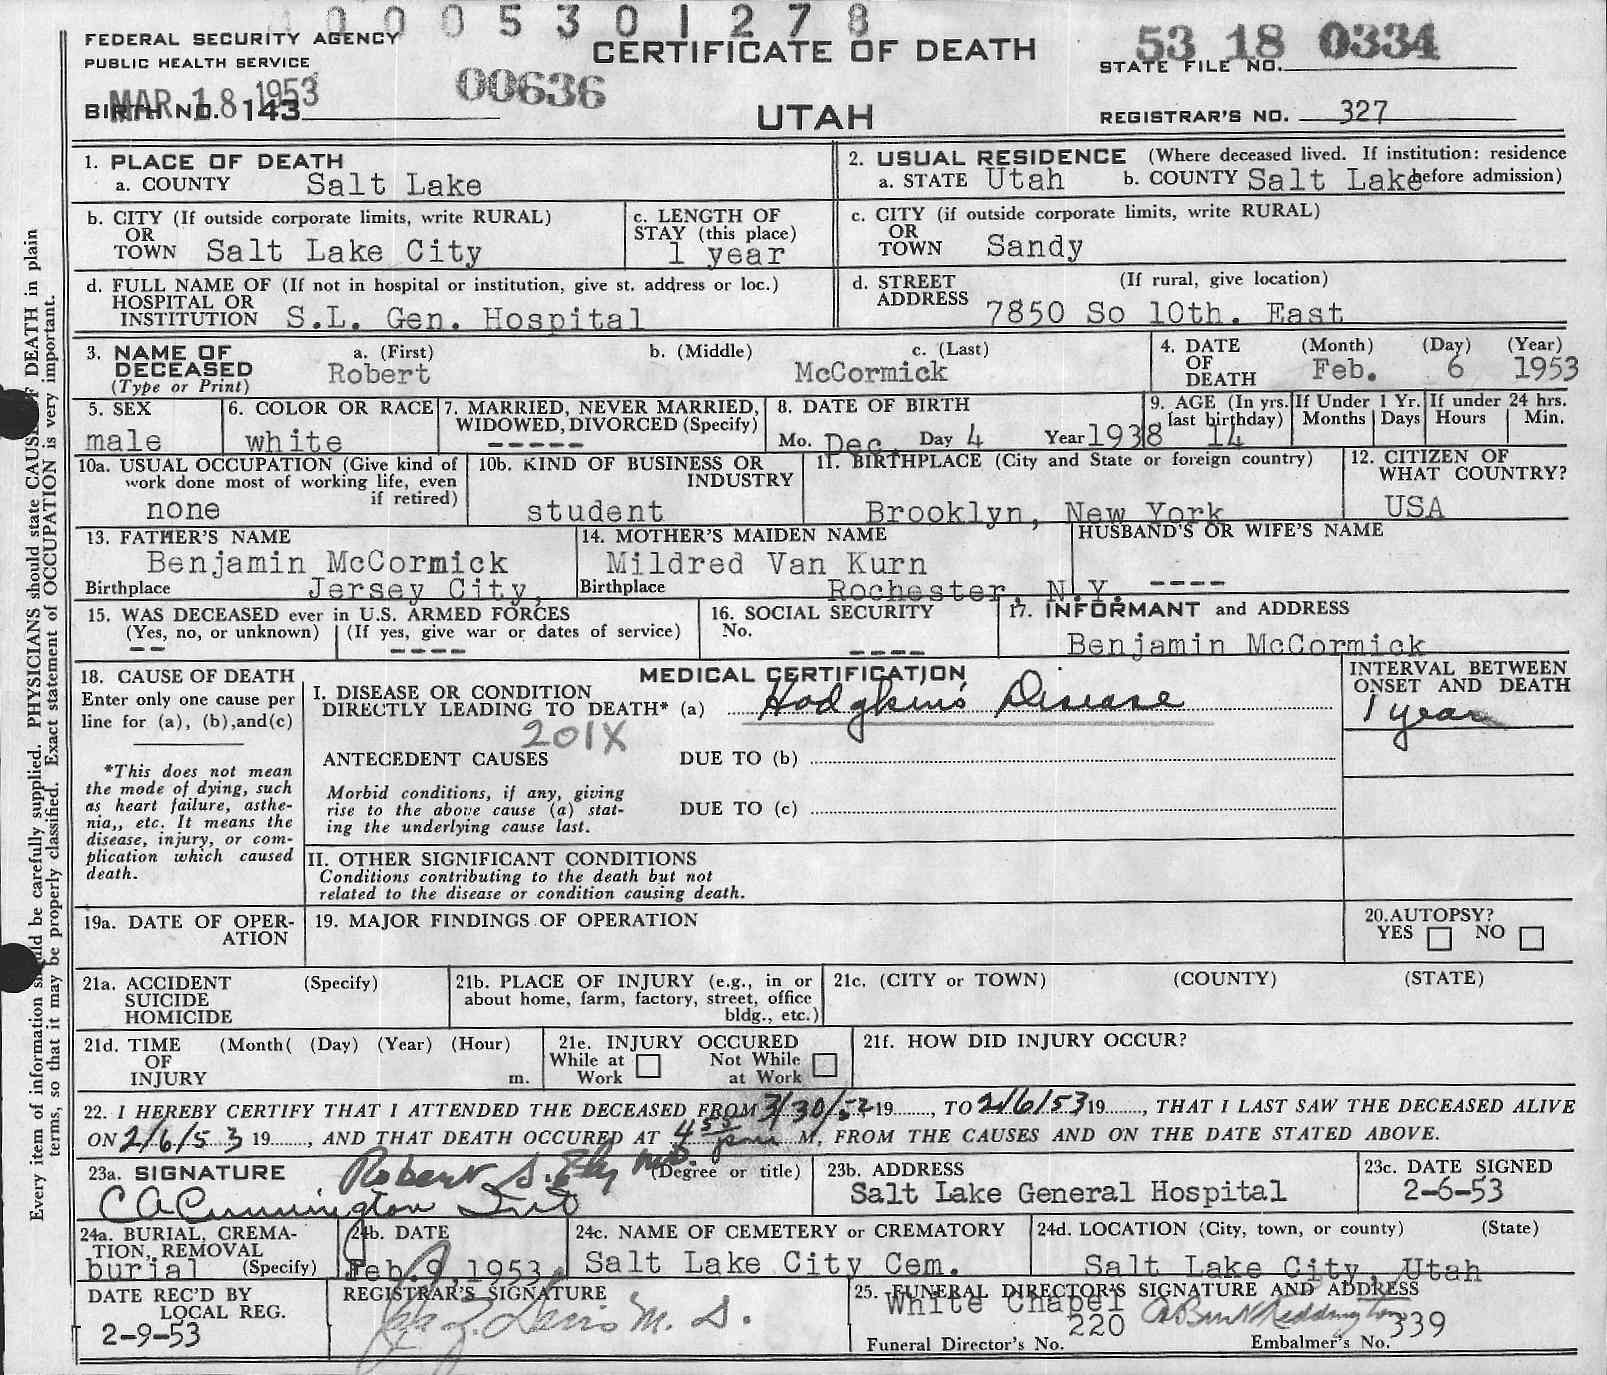 1000 5 3 0 1 2 7 8
FEDERAL SECURITY AGENCY
PUBLIC HEALTH SERVICE
CERTIFICATE OF DEATH
53 18 0334
STATE FILE NO.
MAR 18 1953
00636
BIRTH NO. 143
UTAH
REGISTRAR'S NO. 327
1. PLACE OF DEATH
a. COUNTY Salt Lake
2. USUAL RESIDENCE (Where deceased lived. If institution: residence before admission)
a. STATE Utah b. COUNTY Salt Lake
b. CITY (If outside corporate limits, write RURAL)
OR
TOWN Salt Lake City
c. LENGTH OF
STAY (this place)
1 year
c. CITY (if outside corporate limits, write RURAL)
OR
TOWN Sandy
d. FULL NAME OF (If not in hospital or institution, give st. address or loc.)
HOSPITAL OR
INSTITUTION S.L. Gen. Hospital
d. STREET (If rural, give location)
ADDRESS 7850 So 10th. East
3. NAME OF
DECEASED
(Type or Print)
a. (First) b. (Middle) c. (Last)
Robert McCormick
4. DATE
OF
DEATH
(Month) (Day) (Year)
Feb. 6 1953
5. SEX
male
6. COLOR OR RACE
white
7. MARRIED, NEVER MARRIED,
WIDOWED, DIVORCED (Specify)
-----
8. DATE OF BIRTH
Mo. Dec. Day 4 Year 1938
9. AGE (In yrs.
last birthday)
14
If Under 1 Yr.
Months Days
If under 24 hrs.
Hours Min.
10a. USUAL OCCUPATION (Give kind of
work done most of working life, even
if retired)
none
10b. KIND OF BUSINESS OR
INDUSTRY
student
11. BIRTHPLACE (City and State or foreign country)
Brooklyn, New York
12. CITIZEN OF
WHAT COUNTRY?
USA
13. FATHER'S NAME
Benjamin McCormick
Birthplace Jersey City,
14. MOTHER'S MAIDEN NAME
Mildred Van Kurn
Birthplace Rochester, N.Y.
HUSBAND'S OR WIFE'S NAME
----
15. WAS DECEASED ever in U.S. ARMED FORCES
(Yes, no, or unknown) (If yes, give war or dates of service)
-- ----
16. SOCIAL SECURITY
No.
----
17. INFORMANT and ADDRESS
Benjamin McCormick
18. CAUSE OF DEATH
Enter only one cause per
line for (a), (b),and(c)
*This does not mean
the mode of dying, such
as heart failure, asthe-
nia,, etc. It means the
disease, injury, or com-
plication which caused
death.
MEDICAL CERTIFICATION
I. DISEASE OR CONDITION
DIRECTLY LEADING TO DEATH* (a) Hodgkin's Disease
201X
ANTECEDENT CAUSES DUE TO (b)
Morbid conditions, if any, giving
rise to the above cause (a) stat-
ing the underlying cause last.
DUE TO (c)
INTERVAL BETWEEN
ONSET AND DEATH
1 year
II. OTHER SIGNIFICANT CONDITIONS
Conditions contributing to the death but not
related to the disease or condition causing death.
19a. DATE OF OPER-
ATION
19. MAJOR FINDINGS OF OPERATION
20.AUTOPSY?
YES NO
21a. ACCIDENT (Specify)
SUICIDE
HOMICIDE
21b. PLACE OF INJURY (e.g., in or
about home, farm, factory, street, office
bldg., etc.)
21c. (CITY or TOWN) (COUNTY) (STATE)
21d. TIME (Month( (Day) (Year) (Hour)
OF
INJURY m.
21e. INJURY OCCURED
While at Work Not While at Work
21f. HOW DID INJURY OCCUR?
22. I HEREBY CERTIFY THAT I ATTENDED THE DECEASED FROM 3/30/52 19......., TO 2/6/53 19......., THAT I LAST SAW THE DECEASED ALIVE
ON 2/6/53 19......., AND THAT DEATH OCCURED AT 4 55 pm M, FROM THE CAUSES AND ON THE DATE STATED ABOVE.
23a. SIGNATURE Robert S. Ely MD. (Degree or title)
C A Cunnington
23b. ADDRESS
Salt Lake General Hospital
23c. DATE SIGNED
2-6-53
24a. BURIAL, CREMA-
TION, REMOVAL
burial (Specify)
24b. DATE
Feb. 9, 1953
24c. NAME OF CEMETERY or CREMATORY
Salt Lake City Cem.
24d. LOCATION (City, town, or county) (State)
Salt Lake City, Utah
DATE REC'D BY
LOCAL REG.
2-9-53
REGISTRAR'S SIGNATURE
M. D.
25. FUNERAL DIRECTOR'S SIGNATURE AND ADDRESS
White Chapel
220 339
Funeral Director's No. Embalmer's No.
Every item of information should be carefully supplied. PHYSICIANS should state CAUSE OF DEATH in plain
terms, so that it may be properly classified. Exact statement of OCCUPATION is very important.